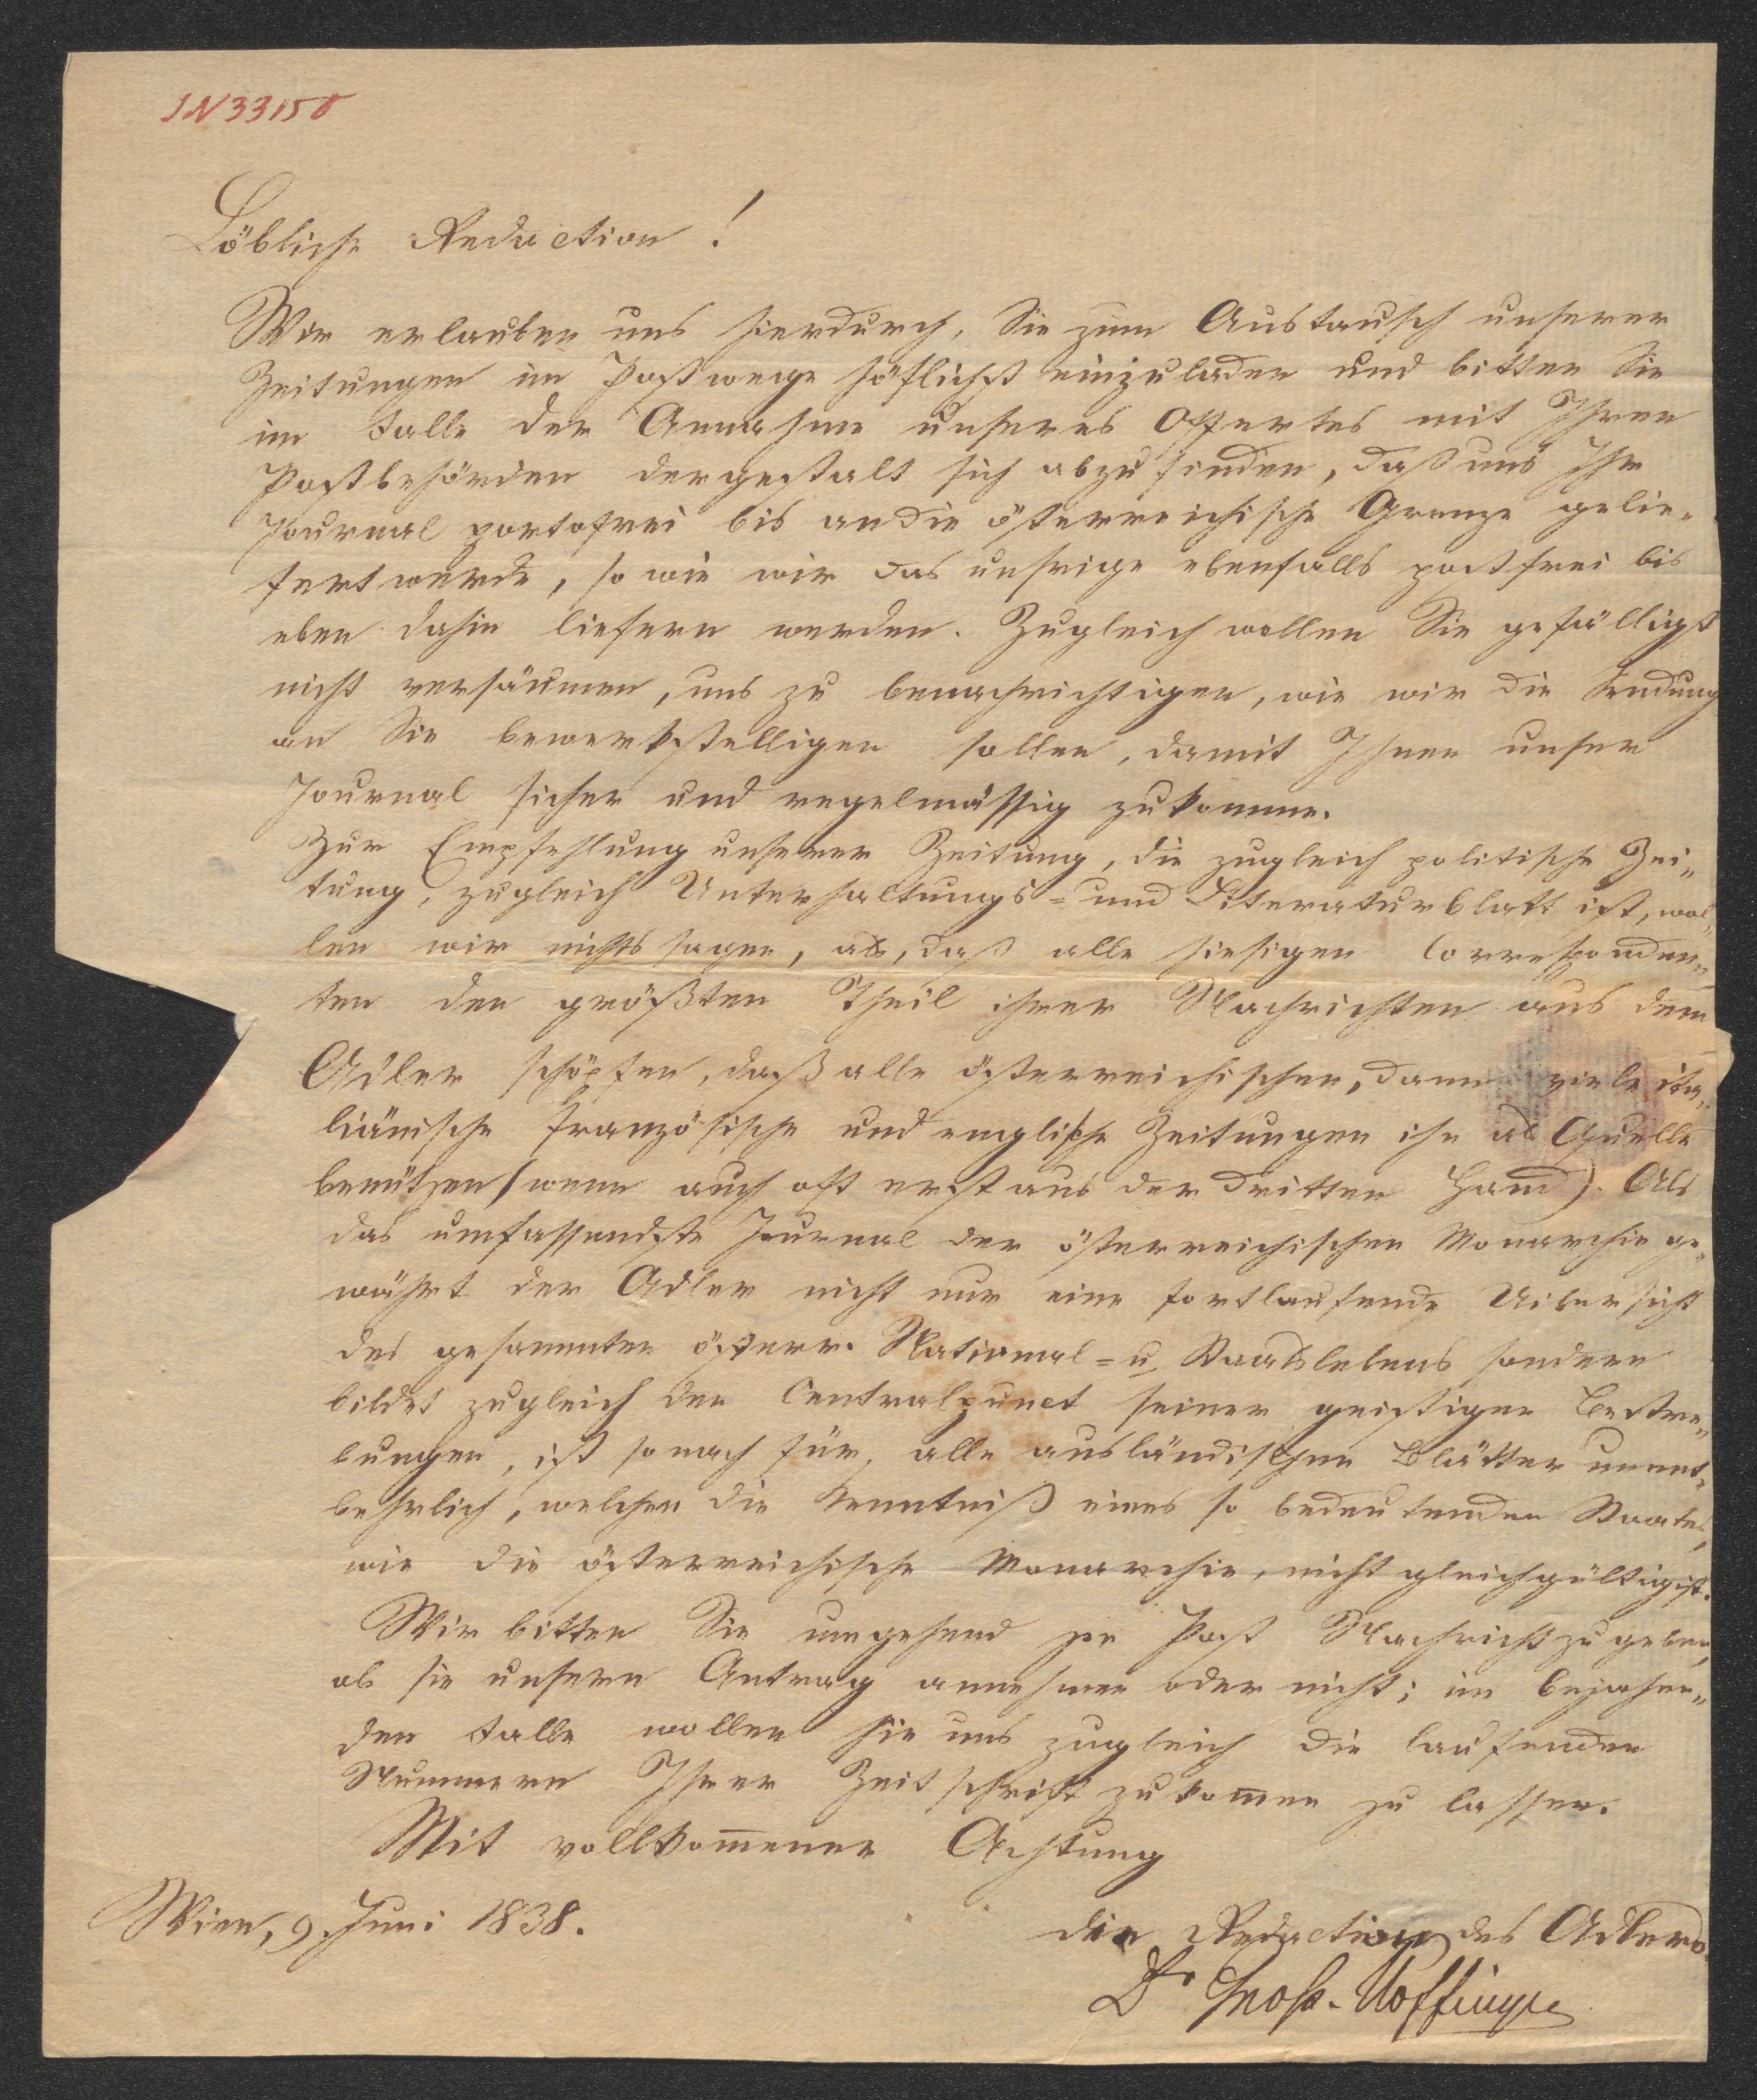 IN 33158
Löbliche Redaction!
Wir erlauben uns hierdurch, Sie zum Austausch unserer
Zeitungen im Postwege höflichst einzuladen und bitten Sie
im Falle der Annahme unseres Offertes mit Ihren
Postbehörden dergestalt sich abzufinden, daß uns Ihr
Journal portofrei bis an die österreichische Grenze gelie-
fert werde, so wie wir das unsrige ebenfalls postfrei bis
eben dahin liefern werden. Zugleich wollen Sie gefälligst
nicht versäumen, uns zu benachrichtigen, wie wir die Sendung
an Sie bewerkstelligen sollen, damit Ihnen unser
Journal sicher und regelmässig zukomme.
Zur Empfehlung unserer Zeitung, die zugleich politische Zei-
tung, zugleich Unterhaltungs- und Literaturblatt ist, wol-
len wir nichts sagen, als, daß alle hiesigen Corresponden-
ten den größten Theil ihrer Nachrichten aus dem
Adler schöpfen, daß alle österreichischen, dann viele ita-
liänische französische und englische Zeitungen ihn als Quelle
benützen (wenn auch oft erst aus der dritten Hand). Als
das umfassendste Journal der österreichischen Monarchie ge-
währt der Adler nicht nur eine fortlaufende Uibersicht
des gesammten österr. National- u. Staatslebens sondern
bildet zugleich den Centralpunct seiner geistigen Bestre-
bungen, ist sonach für alle ausländischen Blätter unent-
behrlich, welchen die Kenntniß eines so bedeutenden Staates,
wie die österreichische Monarchie, nicht gleichgültig ist.
Wir bitten Sie umgehend per Post Nachricht zu geben,
ob sie unsern Antrag annehmen oder nicht; im bejahen-
den Falle wollen sie uns zugleich die laufenden
Nummern Ihrer Zeitschrift zukom̅en zu lassen.
Mit vollkom̅ener Achtung
Wien, 9. Juni 1838.
die Redaction des Adlers
Dr Groß-Hoffinger